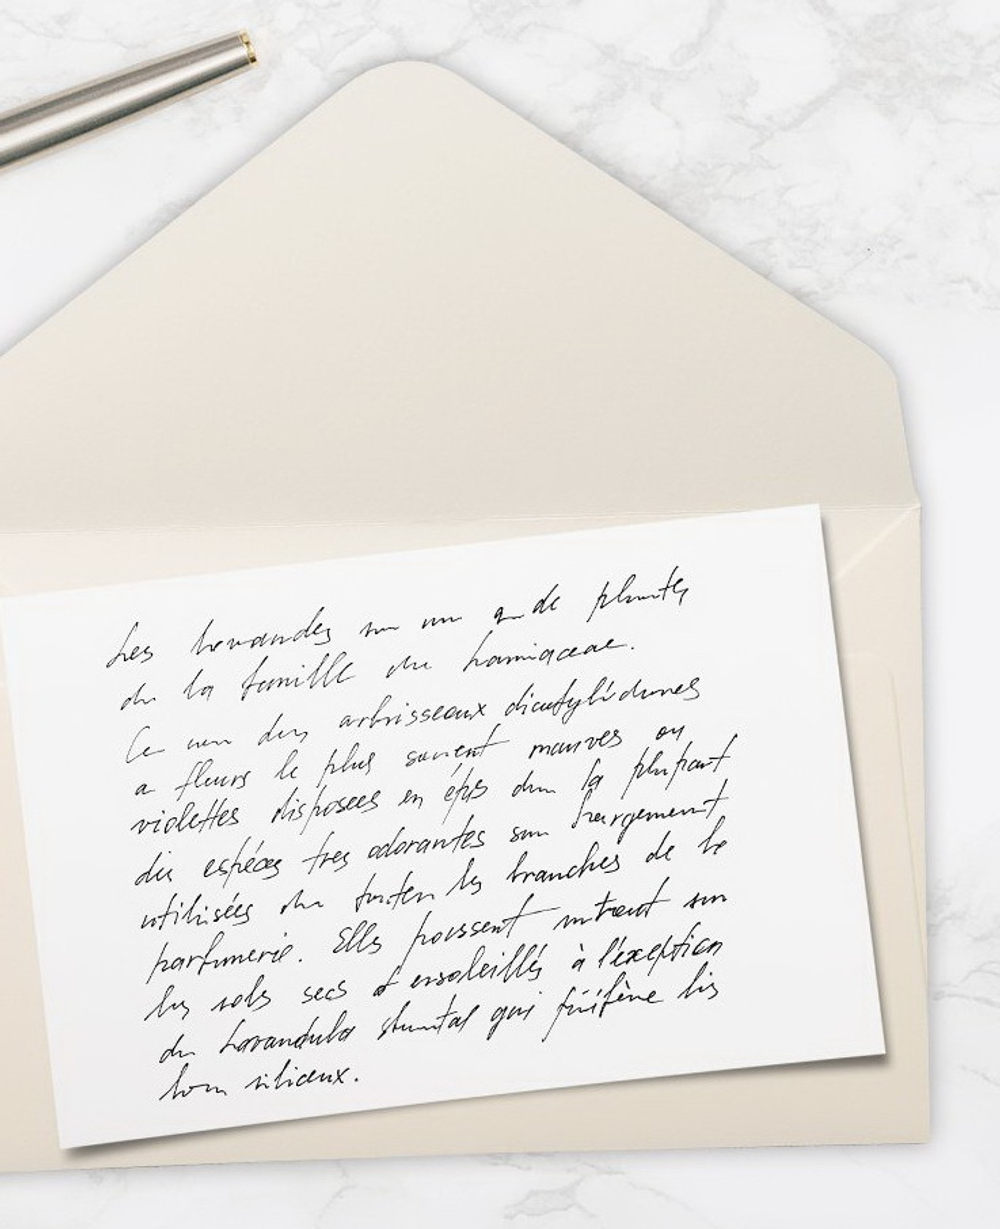 Les lavandes un de plantes
de la famille du Lamiaceae.
Ce arbrisseaux dicotylédones
a fleurs le plus souvent mauves ou
violettes disposees en épis la plupart
des espéces tres odorantes largement
utilisées les branches de la
parfumerie. Elles poussent surtout sur
les sols secs et ensoleillés à l'exception
du Lavandula qui préfère les
silicieux.